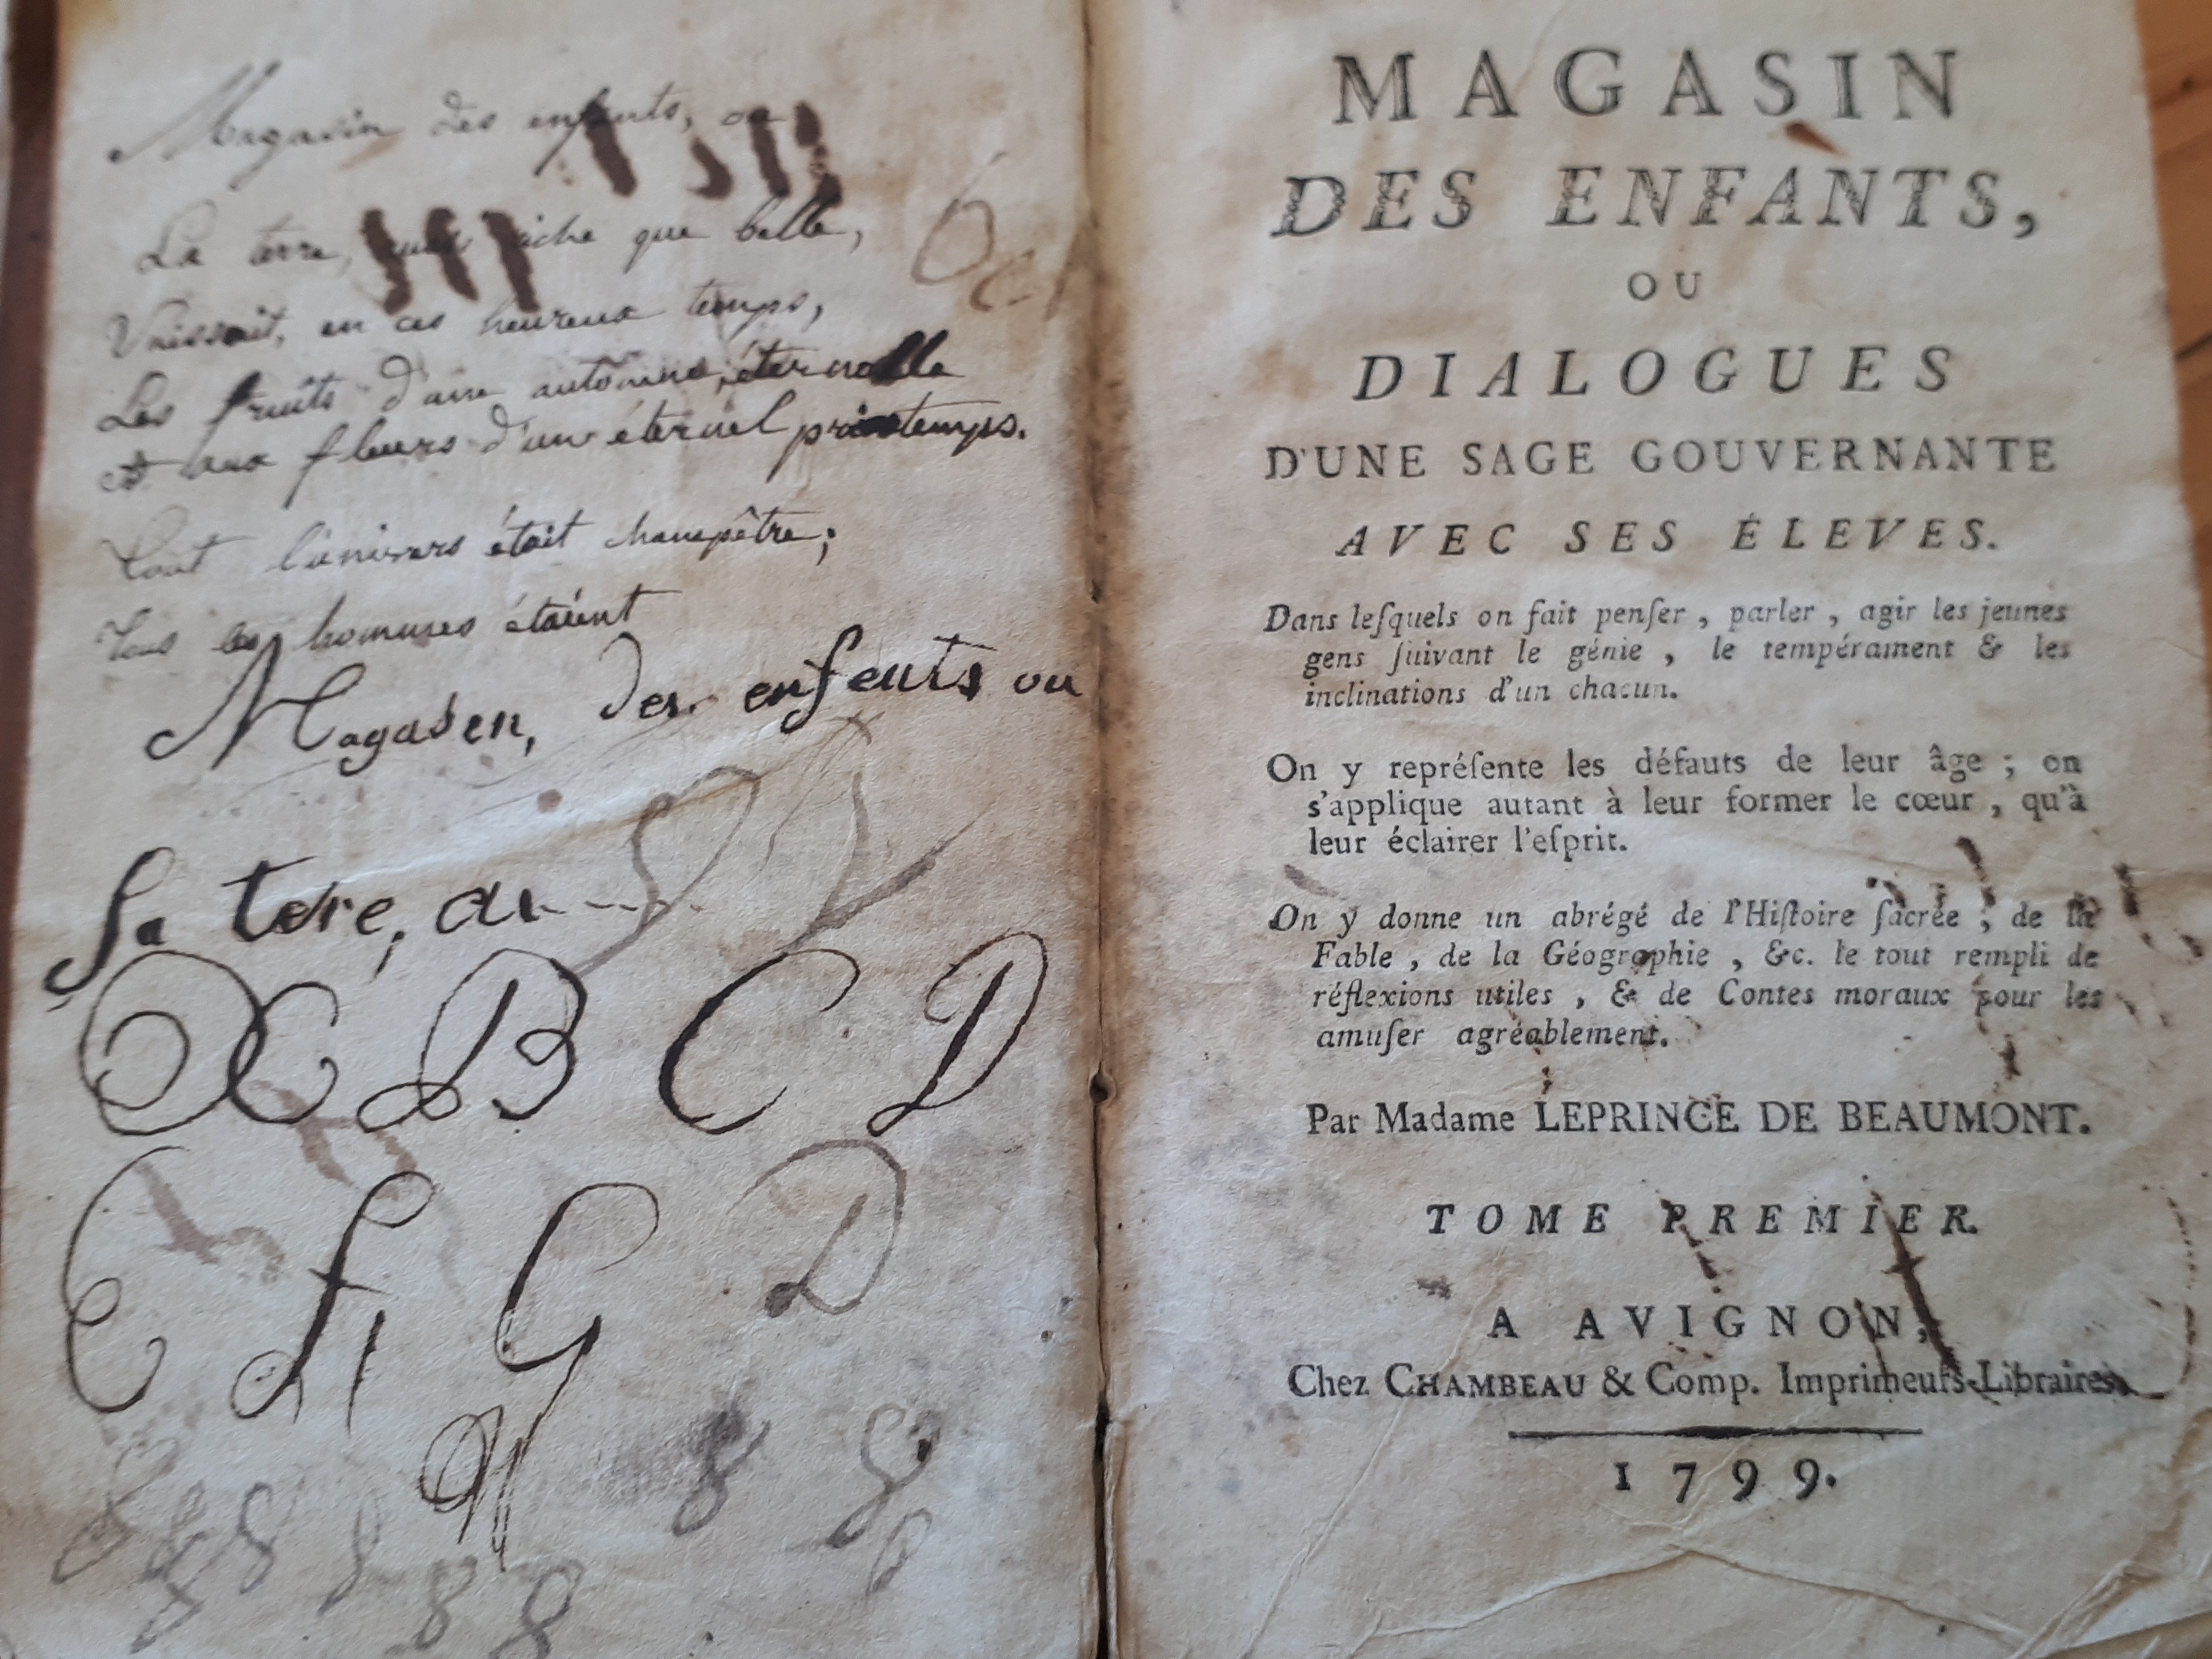 Magasin des enfants, ou
La terre, aussi riche que belle,
Unissait, en ces heureux temps,
Les fruits d'une automne éternelle
et aux fleurs d'un éternel printemps.
Tout l'univers était champêtre;
Tous les hommes étaient
Magasen, des enfents ou
La tere, au
A B C D
E F G D
8 8 8 8 8
MAGASIN
DES ENFANTS,
OU
DIALOGUES
D'UNE SAGE GOUVERNANTE
AVEC SES ÉLEVES.
Dans leſquels on fait penſer, parler, agir les jeunes
gens ſuivant le génie, le tempérament & les
inclinations d'un chacun.
On y repréſente les défauts de leur âge; on
s'applique autant à leur former le cœur, qu'à
leur éclairer l'eſprit.
On y donne un abrégé de l'Hiſtoire ſacrée; de la
Fable, de la Géographie, &c. le tout rempli de
réflexions utiles, & de Contes moraux pour les
amuſer agréablement.
Par Madame LEPRINCE DE BEAUMONT.
TOME PREMIER.
A AVIGNON,
Chez CHAMBEAU & Comp. Imprimeurs-Libraires.
1799.